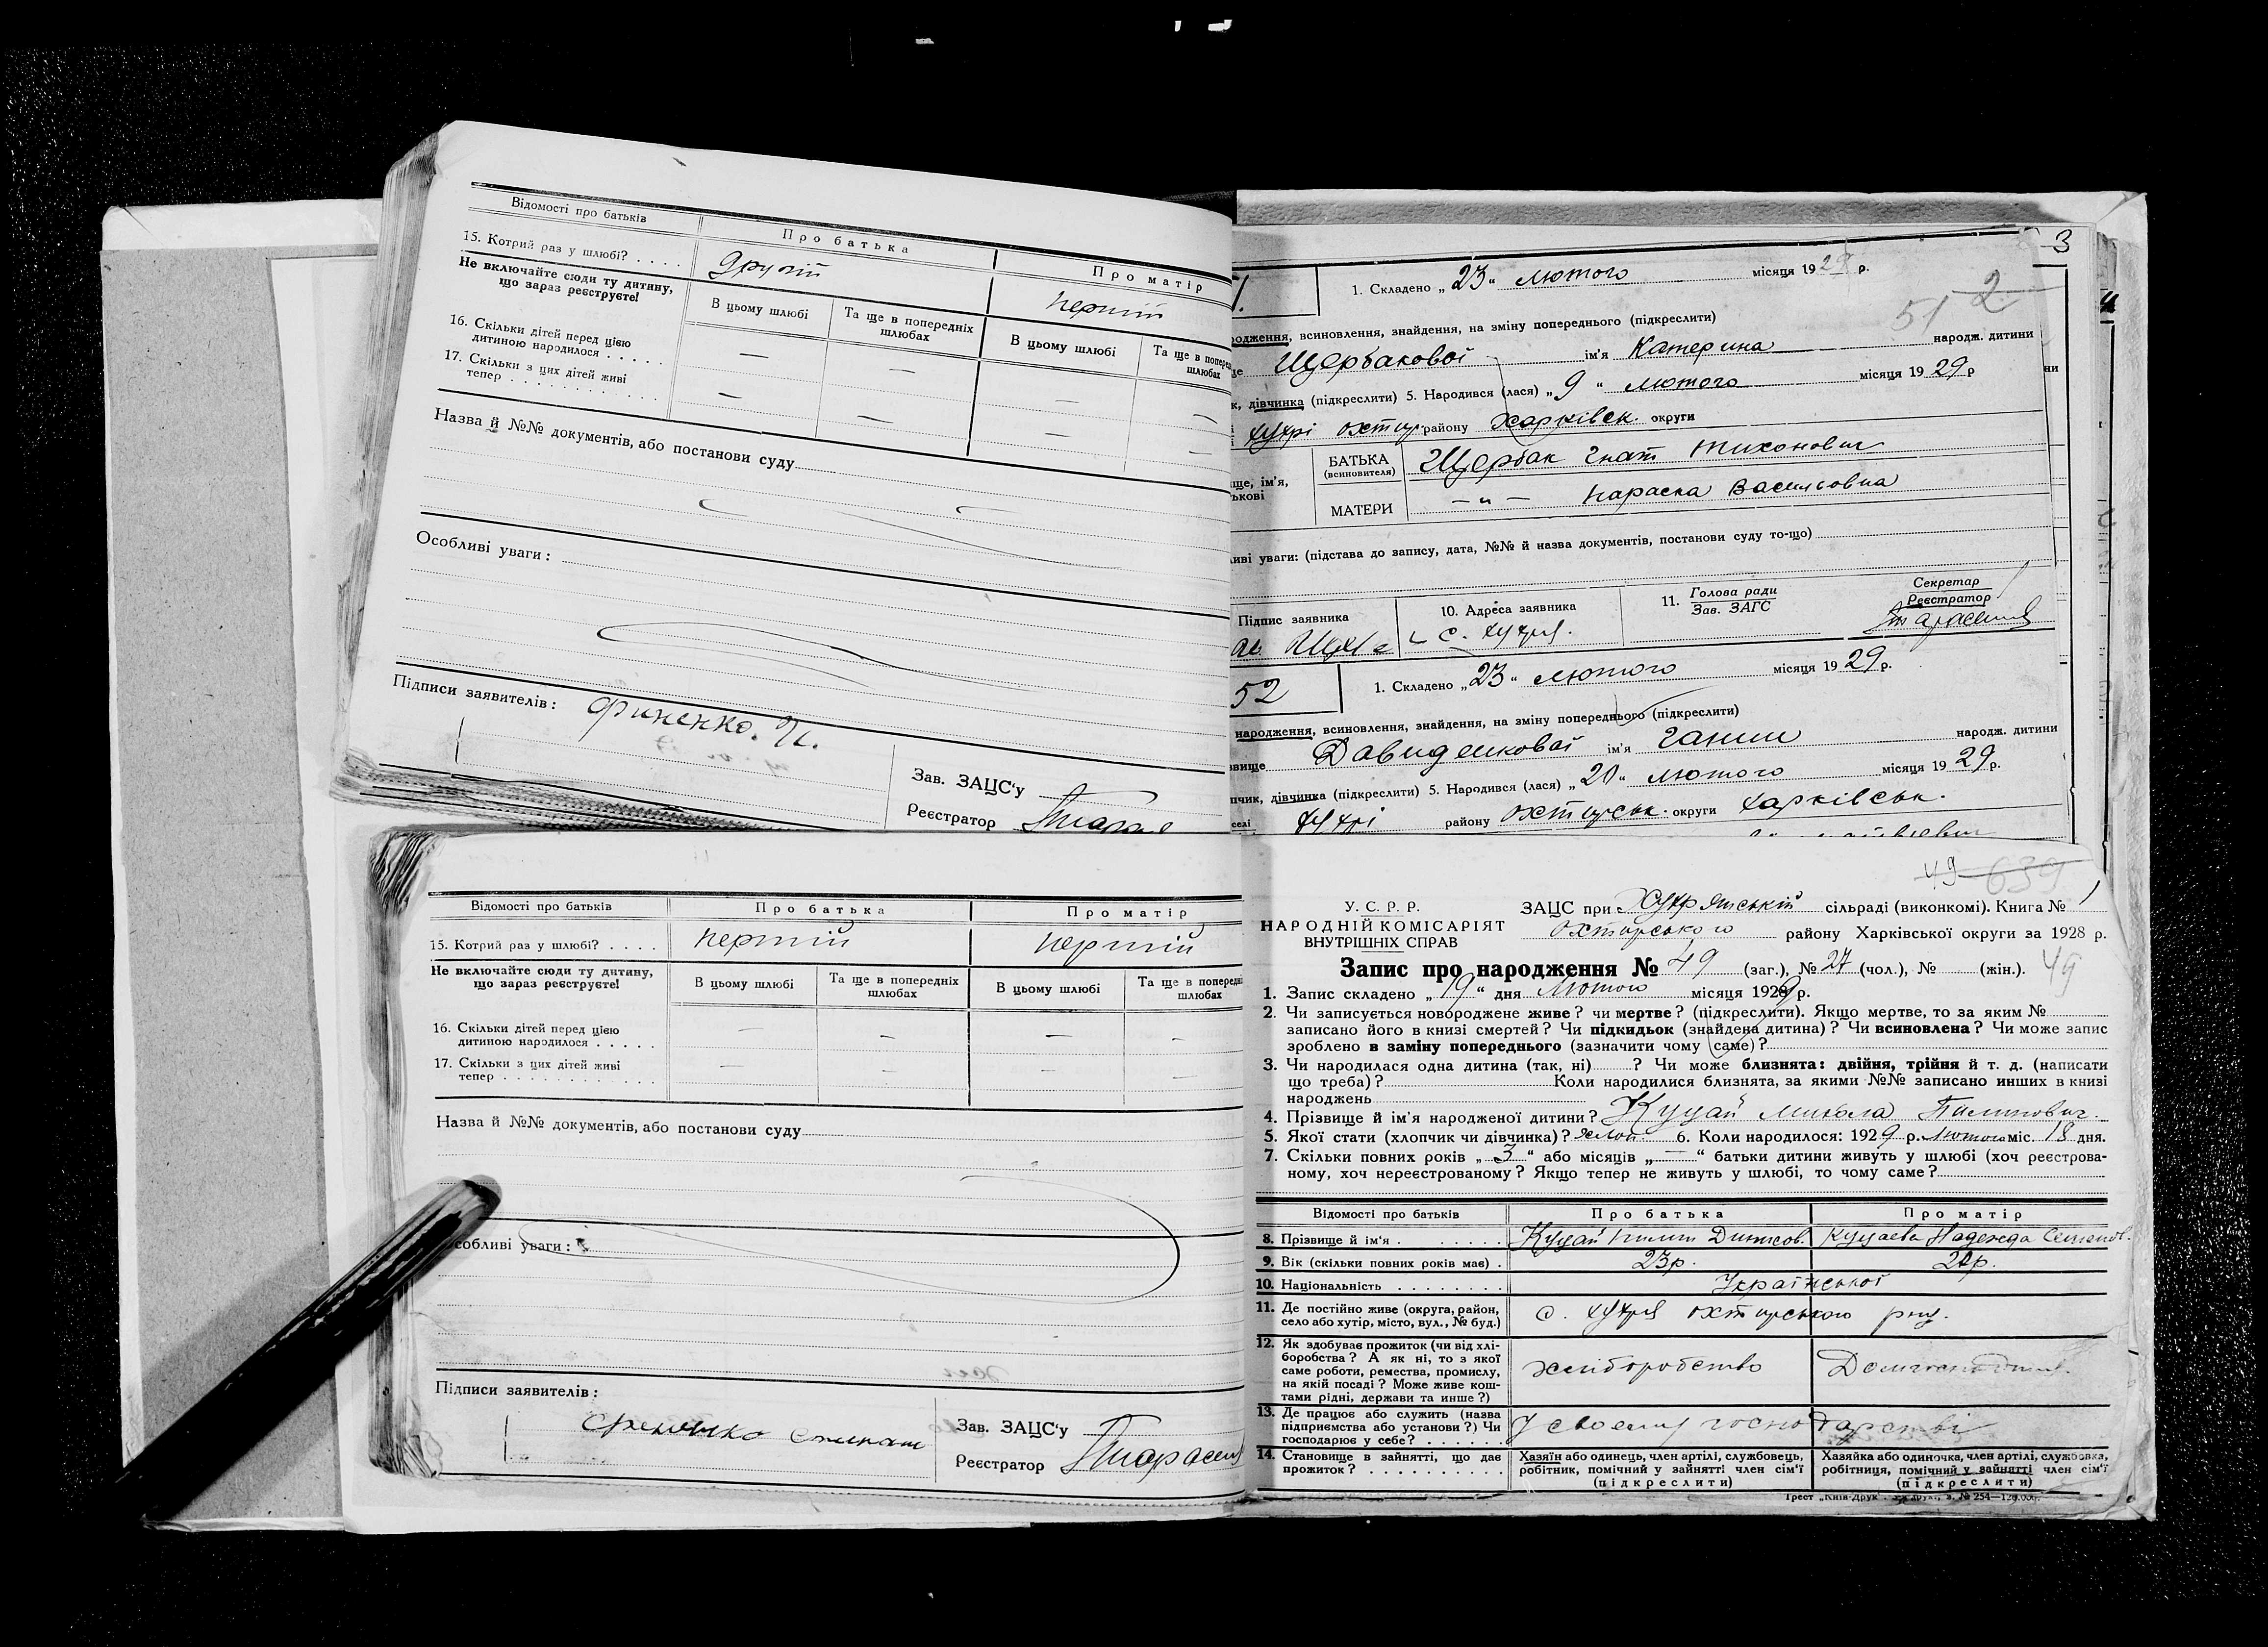 Відомості про батьків
Про батька
Про матір
15. Котрий раз у шлюбі? . . . .
другий
перший
Не включайте сюди ту дитину,
що зараз реєструєте!
В цьому шлюбі
Та ще в попередніх
шлюбах
В цьому шлюбі
Та ще в попере
шлюбах
16. Скільки дітей перед цією
дитиною народилося . . . . .
— — — —
17. Скільки з цих дітей живі
тепер . . . . . . . . . . . .
— — — —
Назва й №№ документів, або постанови суду
Особливі уваги:
Підписи заявителів: Финенко. И.
Зав. ЗАЦС'у
Реєстратор
3
1. Складено „23“ лютого місяця 1929 р.
51 2
родження, всиновлення, знайдення, на зміну попереднього (підкреслити)
Щербакової ім'я Катерина народж. дитини
к, дівчинка (підкреслити) 5. Народився (лася) „9“ лютого місяця 1929 р
хухрі охтир. району Харківськ. округи
ще, ім'я,
ькові
БАТЬКА
(всиновителя)
Щербак Гнат Тихонович
МАТЕРИ
—„— Параска Василовна
ливі уваги: (підстава до запису, дата, №№ й назва документів, постанови суду то-що)
Підпис заявника
10. Адреса заявника
с. хухря.
11. Голова ради
Зав. ЗАГС
Секретар
Реєстратор
52
1. Складено „23“ лютого місяця 1929 р.
народження, всиновлення, знайдення, на зміну попереднього (підкреслити)
звище Давиденкової ім'я Ганни народж. дитини
пчик, дівчинка (підкреслити) 5. Народився (лася) „20“ лютого місяця 1929 р.
селі хухрі району Охтирськ. округи Харківськ.
Відомості про батьків
Про батька
Про матір
15. Котрий раз у шлюбі? . . . .
перший
перший
Не включайте сюди ту дитину,
що зараз реєструєте!
В цьому шлюбі
Та ще в попередніх
шлюбах
В цьому шлюбі
Та ще в попередн
шлюбах
16. Скільки дітей перед цією
дитиною народилося . . . . .
— — — —
17. Скільки з цих дітей живі
тепер . . . . . . . . . . . .
— — — —
Назва й №№ документів, або постанови суду
собливі уваги:
Підписи заявителів:
Зав. ЗАЦС'у
Реєстратор Тарасенк
49 639
У. С. Р. Р.
НАРОДНІЙ КОМІСАРІЯТ
ВНУТРІШНІХ СПРАВ
ЗАЦС при Хухрянській сільраді (виконкомі). Книга № 1
Охтирського району Харківської округи за 1928 р.
Запис про народження № 49 (заг.), № 27 (чол.), № (жін.). 49
1. Запис складено „19“ дня Лютого місяця 1929 р.
2. Чи записується новороджене живе? чи мертве? (підкреслити). Якщо мертве, то за яким №
записано його в книзі смертей? Чи підкидьок (знайдена дитина)? Чи всиновлена? Чи може запис
зроблено в заміну попереднього (зазначити чому саме)?
3. Чи народилася одна дитина (так, ні) ? Чи може близнята: двійня, трійня й т. д. (написати
що треба)? Коли народилися близнята, за якими №№ записано инших в книзі
народжень
4. Прізвище й ім'я народженої дитини? Куцай Микола Пилипович.
5. Якої стати (хлопчик чи дівчинка)? хлоп. 6. Коли народилося: 1929 р. Лютого міс. 18 дня.
7. Скільки повних років „3“ або місяців „—“ батьки дитини живуть у шлюбі (хоч реєстрова-
ному, хоч нереєстрованому? Якщо тепер не живуть у шлюбі, то чому саме?
Відомості про батьків
Про батька
Про матір
8. Прізвище й ім'я . . . . . . .
Куцай Пилип Динисов.
Куцаева Надежда Семенов.
9. Вік (скільки повних років має) .
23р.
10. Національність . . . . . . . .
Української
11. Де постійно живе (округа, район,
село або хутір, місто, вул., № буд.)
с. хухря охтирського рну.
12. Як здобуває прожиток (чи від хлі-
боробства? А як ні, то з якої
саме роботи, ремества, промислу,
на якій посаді? Може живе кош-
тами рідні, держави та инше?)
хліборобство
13. Де працює або служить (назва
підприємства або установи?) Чи
господарює у себе? . . . . . .
У своему господарстві
14. Становище в зайнятті, що дає
прожиток? . . . . . . . . . .
Хазяїн або одинець, член артілі, службовець,
робітник, помічний у зайнятті член сім'ї
(підкреслити)
Хазяйка або одиночка, член артілі, службовка,
робітниця, помічний у зайнятті член сім'ї
(підкреслити)